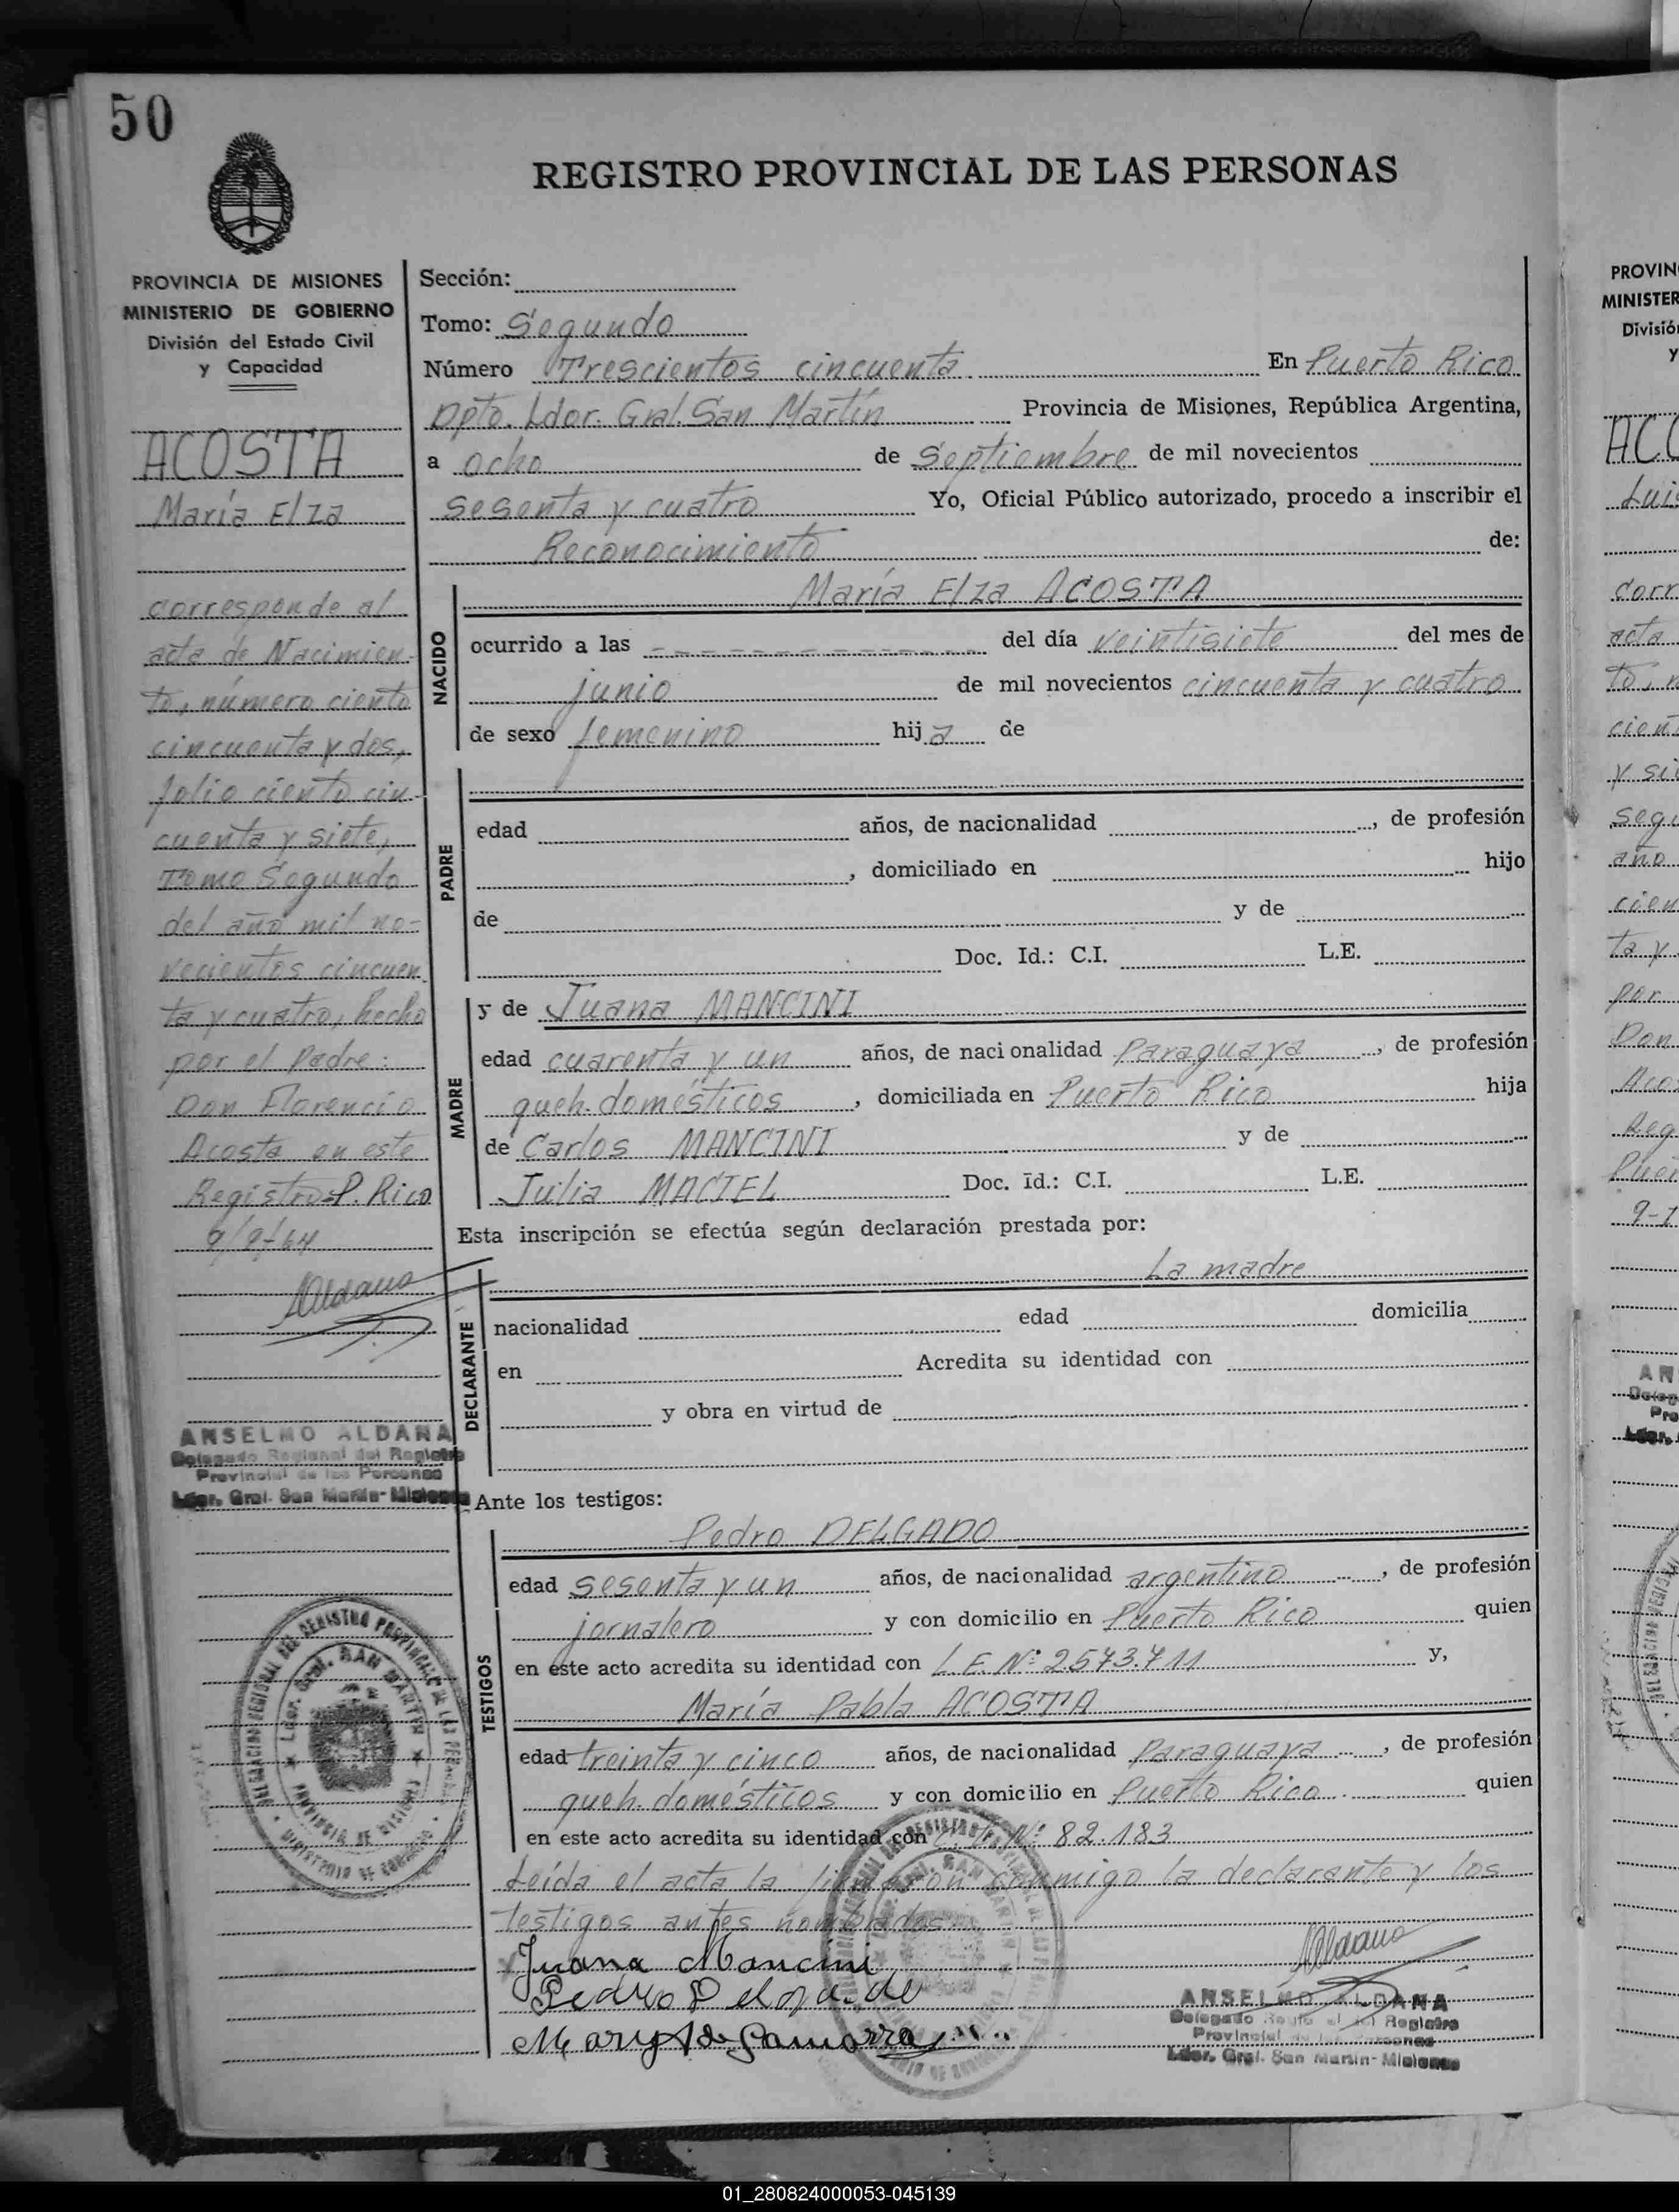 50
REGISTRO PROVINCIAL DE LAS PERSONAS
PROVINCIA DE MISIONES
MINISTERIO DE GOBIERNO
División del Estado Civil
y Capacidad
ACOSTA
María Elza
corresponde al
acta de Nacimien-
to, número ciento
cincuenta y dos,
folio ciento cin-
cuenta y siete,
Tomo Segundo
del año mil no-
vecientos cincuen
ta y cuatro, hecho
por el Padre:
Don Florencio
Acosta en este
Registro P. Rico
9/9/-64
Aldana
ANSELMO ALDANA
Delegado Regional del Registro
Provincial de las Personas
Lder. Gral. San Martín-Misiones
Sección:
Tomo: Segundo
Número Trescientos cincuenta En Puerto Rico
Dpto. Ldor. Gral. San Martín Provincia de Misiones, República Argentina,
a ocho de Septiembre de mil novecientos
sesenta y cuatro Yo, Oficial Público autorizado, procedo a inscribir el
Reconocimiento de:
NACIDO
María Elza ACOSTA
ocurrido a las del día veintisiete del mes de
junio de mil novecientos cincuenta y cuatro
de sexo femenino hija de
PADRE
edad años, de nacionalidad , de profesión
, domiciliado en hijo
de y de
Doc. Id.: C.I. L.E.
MADRE
y de Juana MANCINI
edad cuarenta y un años, de nacionalidad Paraguaya , de profesión
queh. domésticos , domiciliada en Puerto Rico hija
de Carlos MANCINI y de
Julia MACIEL Doc. Id.: C.I. L.E.
Esta inscripción se efectúa según declaración prestada por:
DECLARANTE
La madre
nacionalidad edad domicilia
en Acredita su identidad con
y obra en virtud de
Ante los testigos:
TESTIGOS
Pedro DELGADO
edad sesenta y un años, de nacionalidad argentino , de profesión
jornalero y con domicilio en Puerto Rico quien
en este acto acredita su identidad con L.E. Nº 2573.711 y,
María Pabla ACOSTA
edad treinta y cinco años, de nacionalidad Paraguaya , de profesión
queh. domésticos y con domicilio en Puerto Rico quien
en este acto acredita su identidad con C.I. Nº 82.183
Leída el acta la firmaron conmigo la declarante y los
testigos antes nombrados
Juana Mancini
Pedro Delgado
Aldana
ANSELMO ALDANA
Delegado del Registro
Provincial de las Personas
Lder. Gral. San Martín-Misiones
DELEGACION REGIONAL DEL REGISTRO PROVINCIAL DE LAS PERSONAS
Lder. Gral. SAN MARTIN
PROVINCIA DE MISIONES
PROVIN
MINISTER
Divisió
y
ACO
Luis
corr
acta
to, n
cien
y si
segu
año
cien
ta y
por
Don
Aco
Reg
Puer
9-
01_280824000053-045139